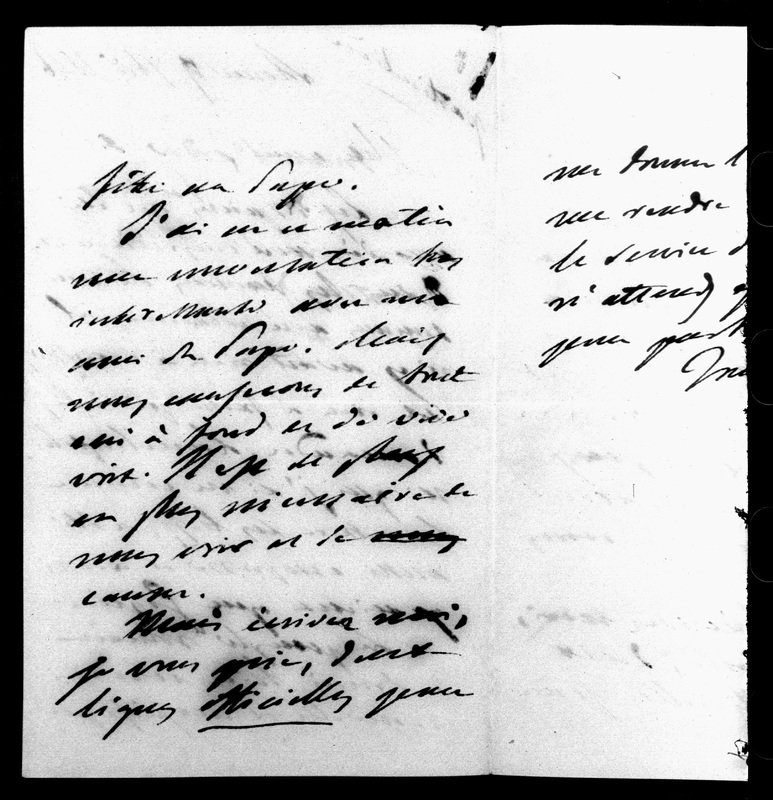 fête au Pape.
J'ai eu ce matin
une conversation très
intéressante avec un
ami du Pape. Mais
nous causerons de tout
ceci à fond et de vive
voix. Il est de plus
en plus nécessaire de
nous voir et de nous
causer.
Mais écrivez moi,
je vous prie, deux
lignes officielles pour
me donner l
me rendre
le service d
n'attends
pour part